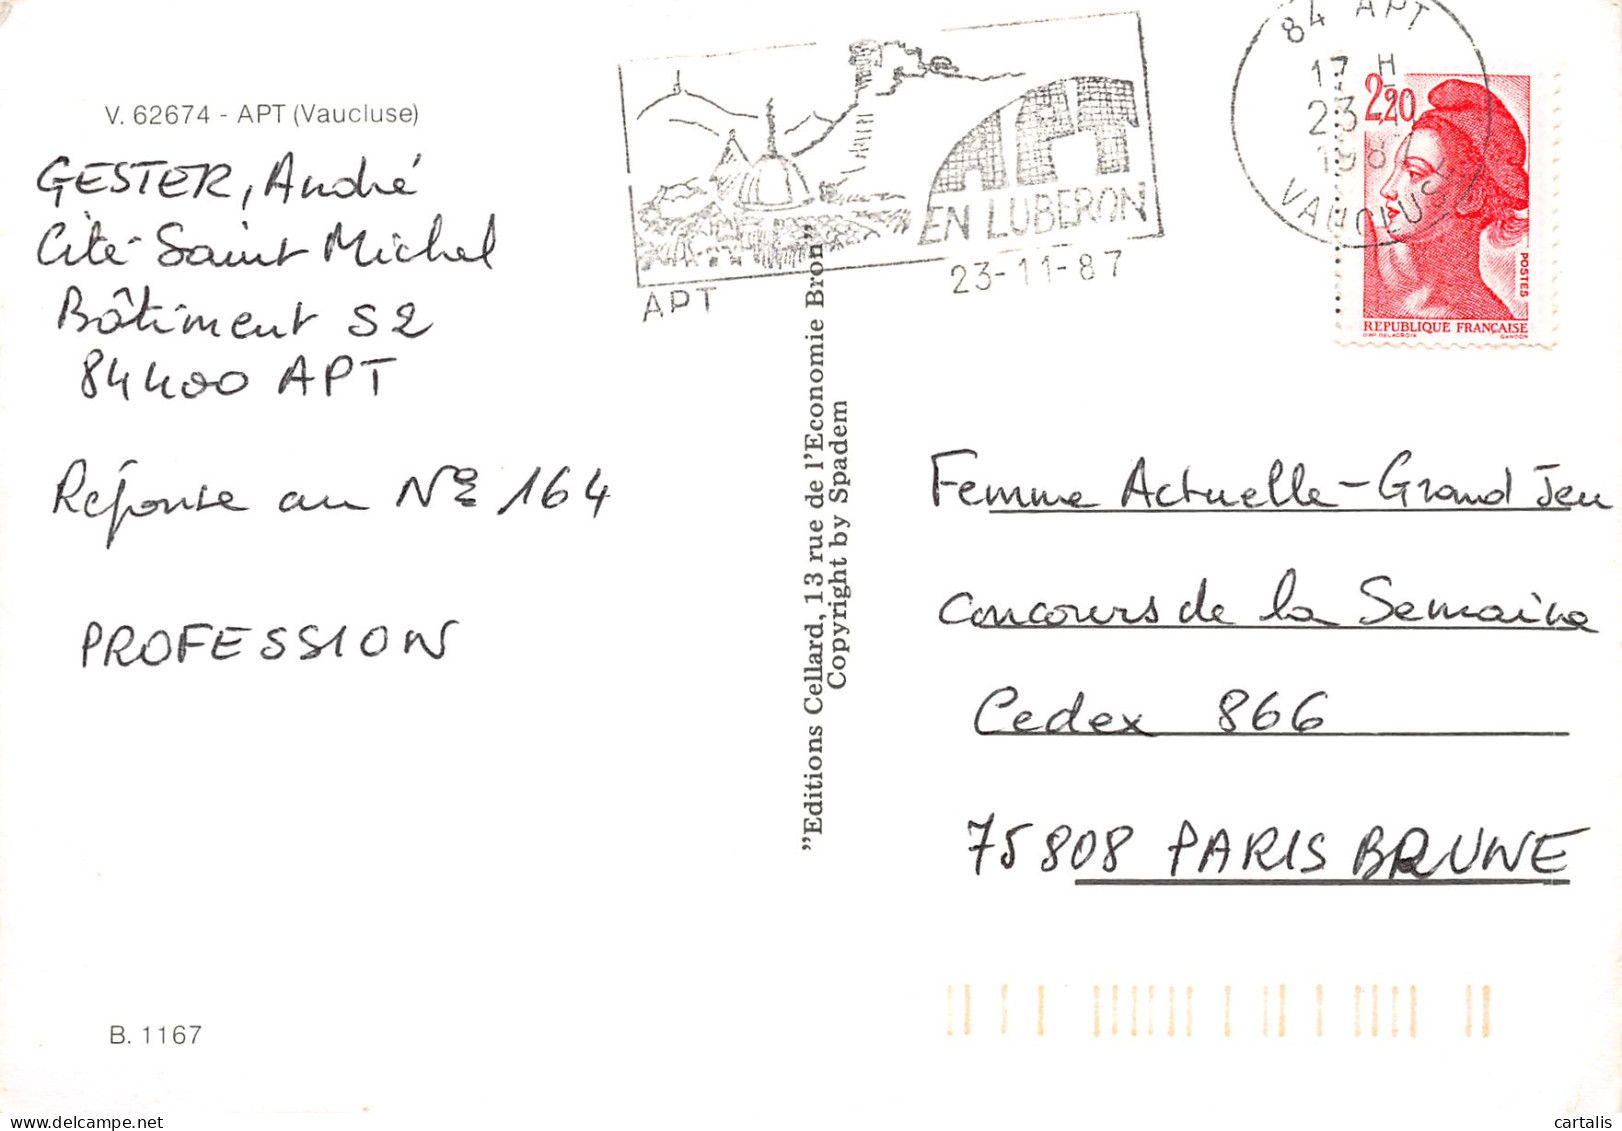 V. 62674 - APT (Vaucluse)
GESTER, André
Cité Saint Michel
Bâtiment S2
84400 APT
Réponse au Nº 164
PROFESSION
B. 1167
APT
EN LUBERON
APT
23-11-87
84 APT
17 H
23-11
198
VAUCLUSE
2,20
POSTES
REPUBLIQUE FRANÇAISE
D'AP. DELACROIX
GANDON
"Editions Cellard, 13 rue de l'Economie Bron"
Copyright by Spadem
Femme Actuelle - Grand Jeu
Concours de la Semaine
Cedex 866
75808 PARIS BRUNE
cartalis
delcampe.net